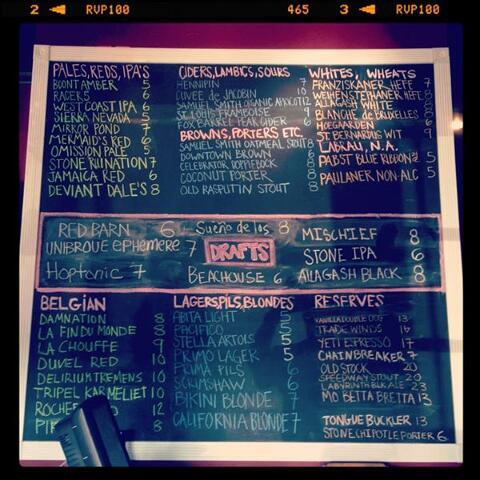 2 RVP100 465 3 RVP100
PALES, REDS, IPA'S
BOONT AMBER 5
RACER 5 6
WEST COAST IPA 6
SIERRA NEVADA 5
MIRROR POND 7
MERMAID'S RED 6
OMISSION PALE 5
STONE RUINATION 7
JAMAICA RED 6
DEVIANT DALE'S 8
CIDERS, LAMBICS, SOURS
HENNIPIN 7
CUVEE de JACOBIN 10
SAMUEL SMITH ORGANIC 12
ST. LOUIS FRAMBOISE 9
FOX BARREL PEAR CIDER 6
BROWNS, PORTERS ETC.
SAMUEL SMITH OATMEAL STOUT 8
DOWNTOWN BROWN 6
CELEBRATOR DOPPLEBOCK
COCONUT PORTER
OLD RASPUTIN STOUT 8
WHITES, WHEATS
FRANZISKANER HEFE 7
WEIHENSTEPHANER HEFE 8
ALLAGASH WHITE
BLANCHE de BRUXELLES 8
HOEGAARDEN
ST BERNARDUS WIT 9
PABST BLUE RIBBON 5
PAULANER NON-ALC 5
RED BARN 6
UNIBROUE EPHEMERE 7
Hoptonic 7
Sueño de los 8
DRAFTS
BEACHOUSE 6
MISCHIEF 8
STONE IPA 6
ALLAGASH BLACK 8
BELGIAN
DAMNATION 8
LA FIN DU MONDE 8
LA CHOUFFE 9
DUVEL RED 10
DELIRIUM TREMENS 10
TRIPEL KARMELIET 10
ROCHEF 12
8
LAGERS, PILS, BLONDES
ABITA LIGHT 5
PACIFICO 5
STELLA ARTOIS 5
PRIMO LAGER 5
PRIMA PILS 6
SCRIMSHAW 6
BIKINI BLONDE 7
CALIFORNIA BLONDE 7
RESERVES
VANILLA DOUBLE DOG 13
TRADE WINDS 16
YETI ESPRESSO 17
CHAINBREAKER 7
OLD STOCK 20
SPEEDWAY STOUT 20
LABYRINTH BLK ALE 23
MO BETTA BRETTA 13
TONGUE BUCKLER 13
STONE CHIPOTLE PORTER 6